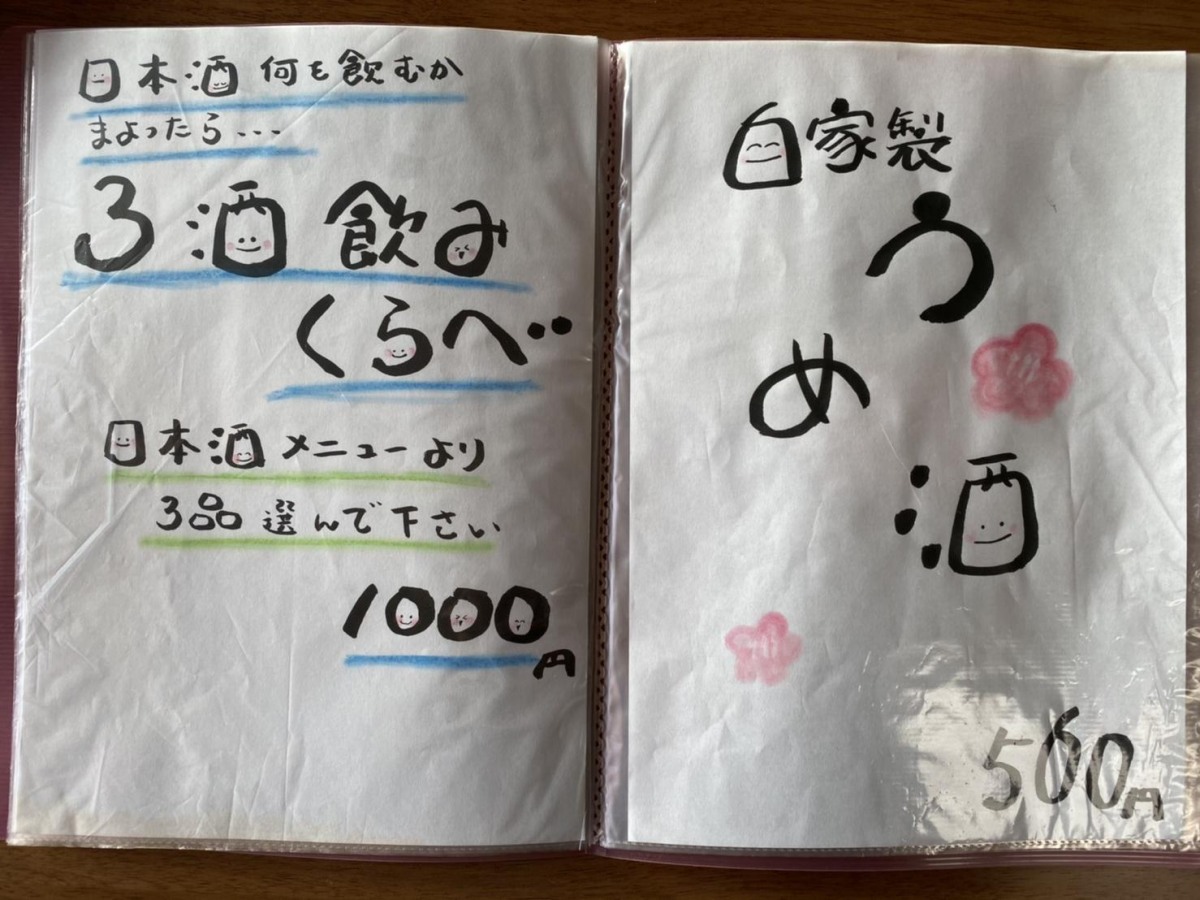 日本酒 何を飲むか
まよったら...
3酒飲み
くらべ
日本酒メニューより
3品選んで下さい
1000円
自家製
う
め
酒
500円